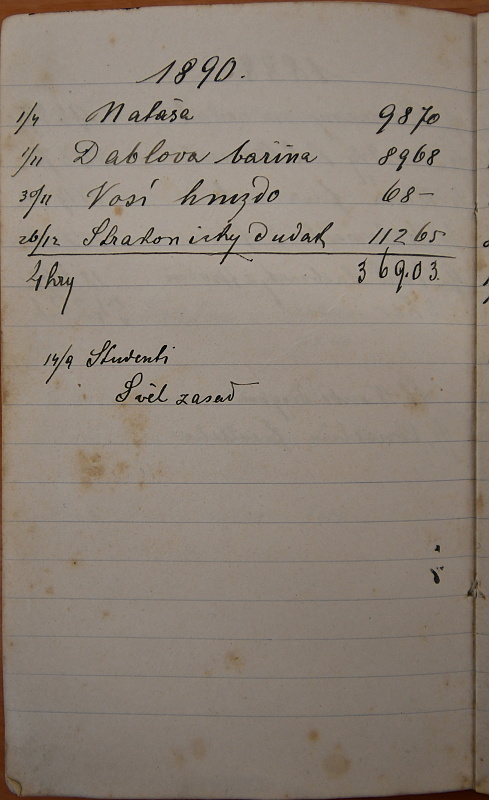 1890.
1/4 Nataša 9870
1/11 Dablova bařina 8968
30/11 Vosí hnizdo 68-
26/12 Strakonicky dudak 11265
4 hry 369.03
14/9 Studenti
Svět zasad